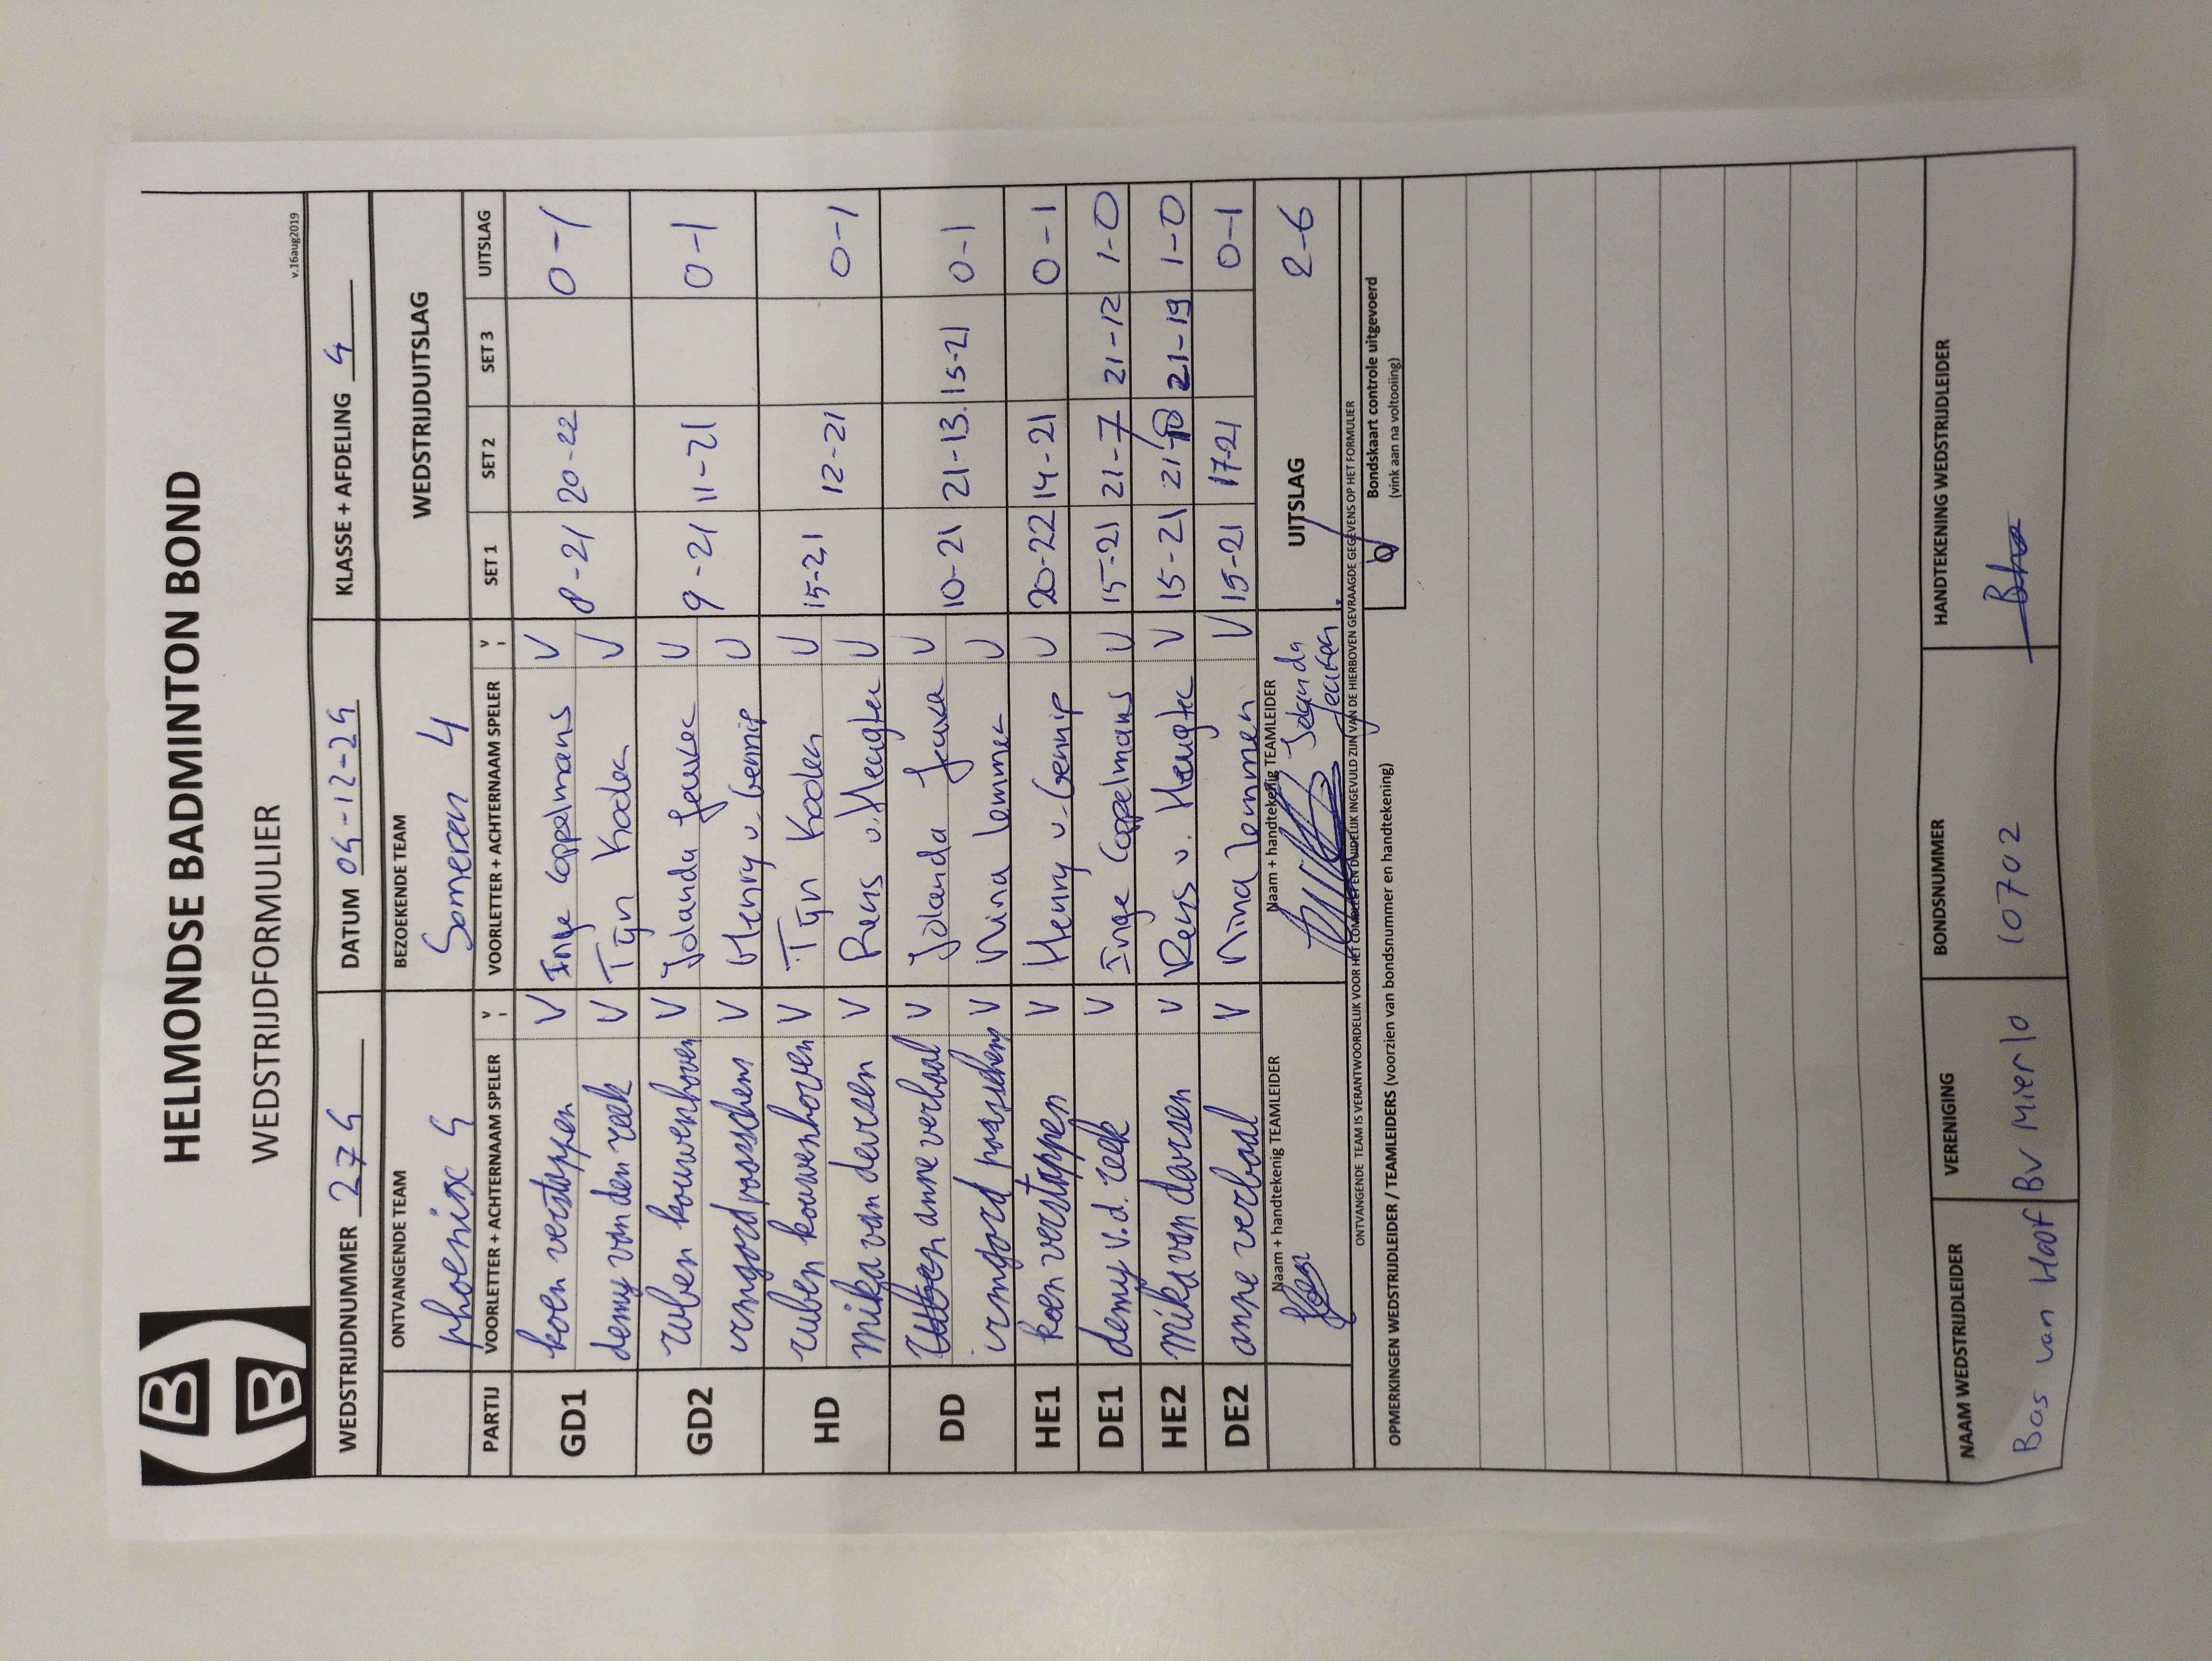 HELMONDSE BADMINTON BOND
WEDSTRIJDFORMULIER
v.16aug2019
WEDSTRIJDNUMMER 274 DATUM 04-12-24 KLASSE + AFDELING 4
ONTVANGENDE TEAM BEZOEKENDE TEAM WEDSTRIJDUITSLAG
phoenix 4 Someren 4
PARTIJ VOORLETTER + ACHTERNAAM SPELER V VOORLETTER + ACHTERNAAM SPELER V SET 1 SET 2 SET 3 UITSLAG
GD1 koen verstappen V Inge Coppelmans V 8-21 20-22 0-1
demy van den reek V Tijn Koolen V
GD2 ruben kouwenhoven V Jolanda V 9-21 11-21 0-1
irmgard V Henry v. Gennip V
HD ruben kouwenhoven V Tijn Koolen V 15-21 12-21 0-1
mika van deursen V Rens v. Heugten V
DD anne verbaal V Jolanda V 10-21 21-13 15-21 0-1
irmgard V Nina Lemmen V
HE1 koen verstappen V Henry v. Gennip V 20-22 14-21 0-1
DE1 demy v.d. reek V Inge Coppelmans V 15-21 21-7 21-12 1-0
HE2 mika van deursen V Rens v. Heugten V 15-21 21- 21-19 1-0
DE2 anne verbaal V Nina Lemmen V 15-21 17-21 0-1
Naam + handtekenig TEAMLEIDER Naam + handtekenig TEAMLEIDER UITSLAG 2-6
Jolanda
ONTVANGENDE TEAM IS VERANTWOORDELIJK VOOR HET COMPLEET EN DUIDELIJK INGEVULD ZIJN VAN DE HIERBOVEN GEVRAAGDE GEGEVENS OP HET FORMULIER
OPMERKINGEN WEDSTRIJDLEIDER / TEAMLEIDERS (voorzien van bondsnummer en handtekening)
Bondskaart controle uitgevoerd
(vink aan na voltooiing)
NAAM WEDSTRIJDLEIDER VERENIGING BONDSNUMMER HANDTEKENING WEDSTRIJDLEIDER
Bas van Hoof BV Mierlo 10702